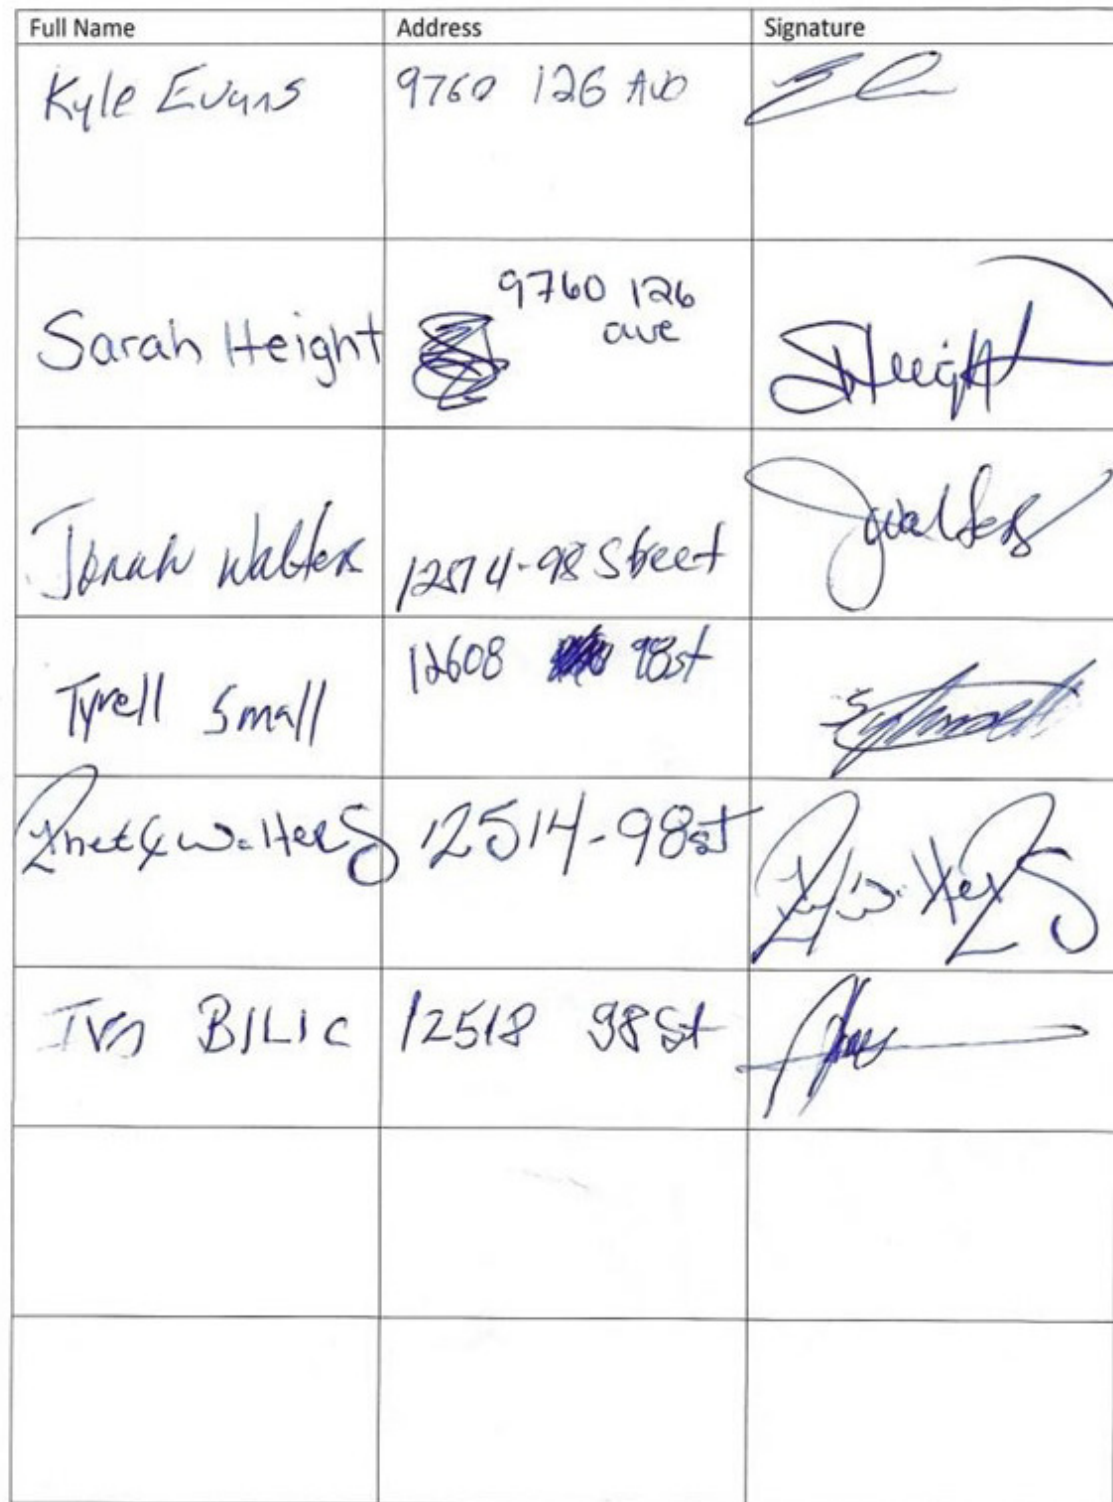 Full Name Address Signature
Kyle Evans 9760 126 Ave
Sarah Height 9760 126
ave
SHeight
Jonah Walters 12514-98 Street JWalters
Tyrell Small 12608 98st
Walters 12514-98st
BILIC 12518 98 St